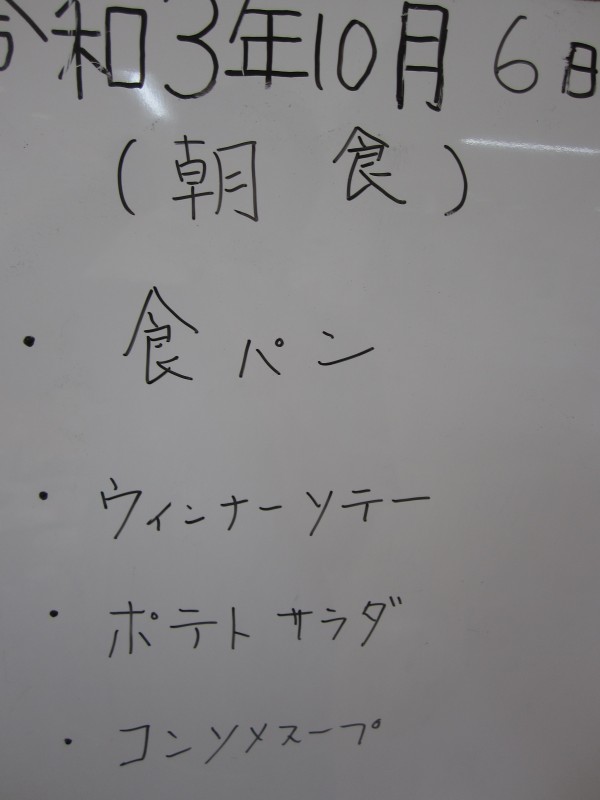 令和3年10月6日
(朝食)
・食パン
・ウィンナーソテー
・ポテトサラダ
・コンソメスープ